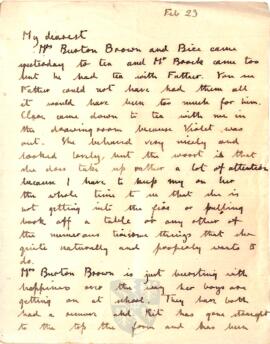 Feb 23
My dearest
Mrs Burton Brown and Bice came
yesterday to tea and Mr Brock came too
but he had tea with Father. You see
Father could not have had them all
it would have been too much for him.
Clare came down to tea with me in
the drawingroom because Violet was
out. She behaved very nicely and
looked lovely, but the worst is that
she does take up rather a lot of attention
because I have to keep my on her
the whole time to see that she is
not getting into the fire or pulling
book off a table or any other of
the numerous tiresome things that she
quite naturally and properly wants to
do.
Mrs Burton Brown is just bursting with
happiness over the way her boys are
getting on at school. They has both
had a remove and Kit has gone straight
to the top the form and has been